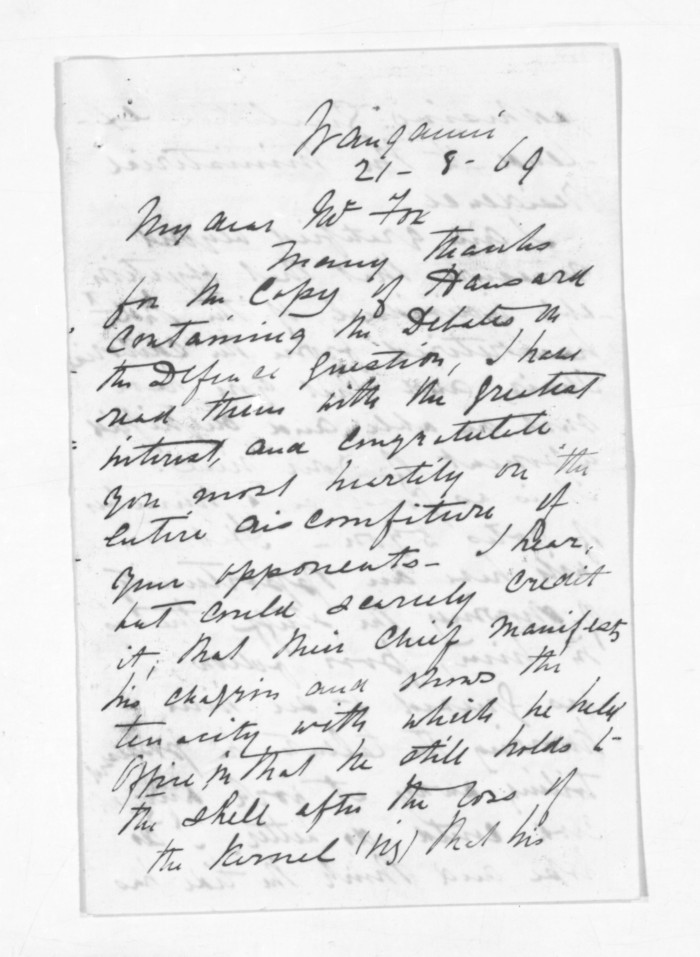 Wanganui
21 - 8 - 69
My dear Mr Fox
Many thanks
for the Copy of Hansard
Containing the Debates on
the Defence Question, I have
read them with the greatest
interest, and congratulate
you most heartily on the
entire discomfiture of
your opponents - I hear,
but could scarcely credit
it, that their Chief manifests
his chagrin and shows the
tenacity with which he held
Office, in that he still holds to
the shell after the loss of
the Kernel (viz) that his